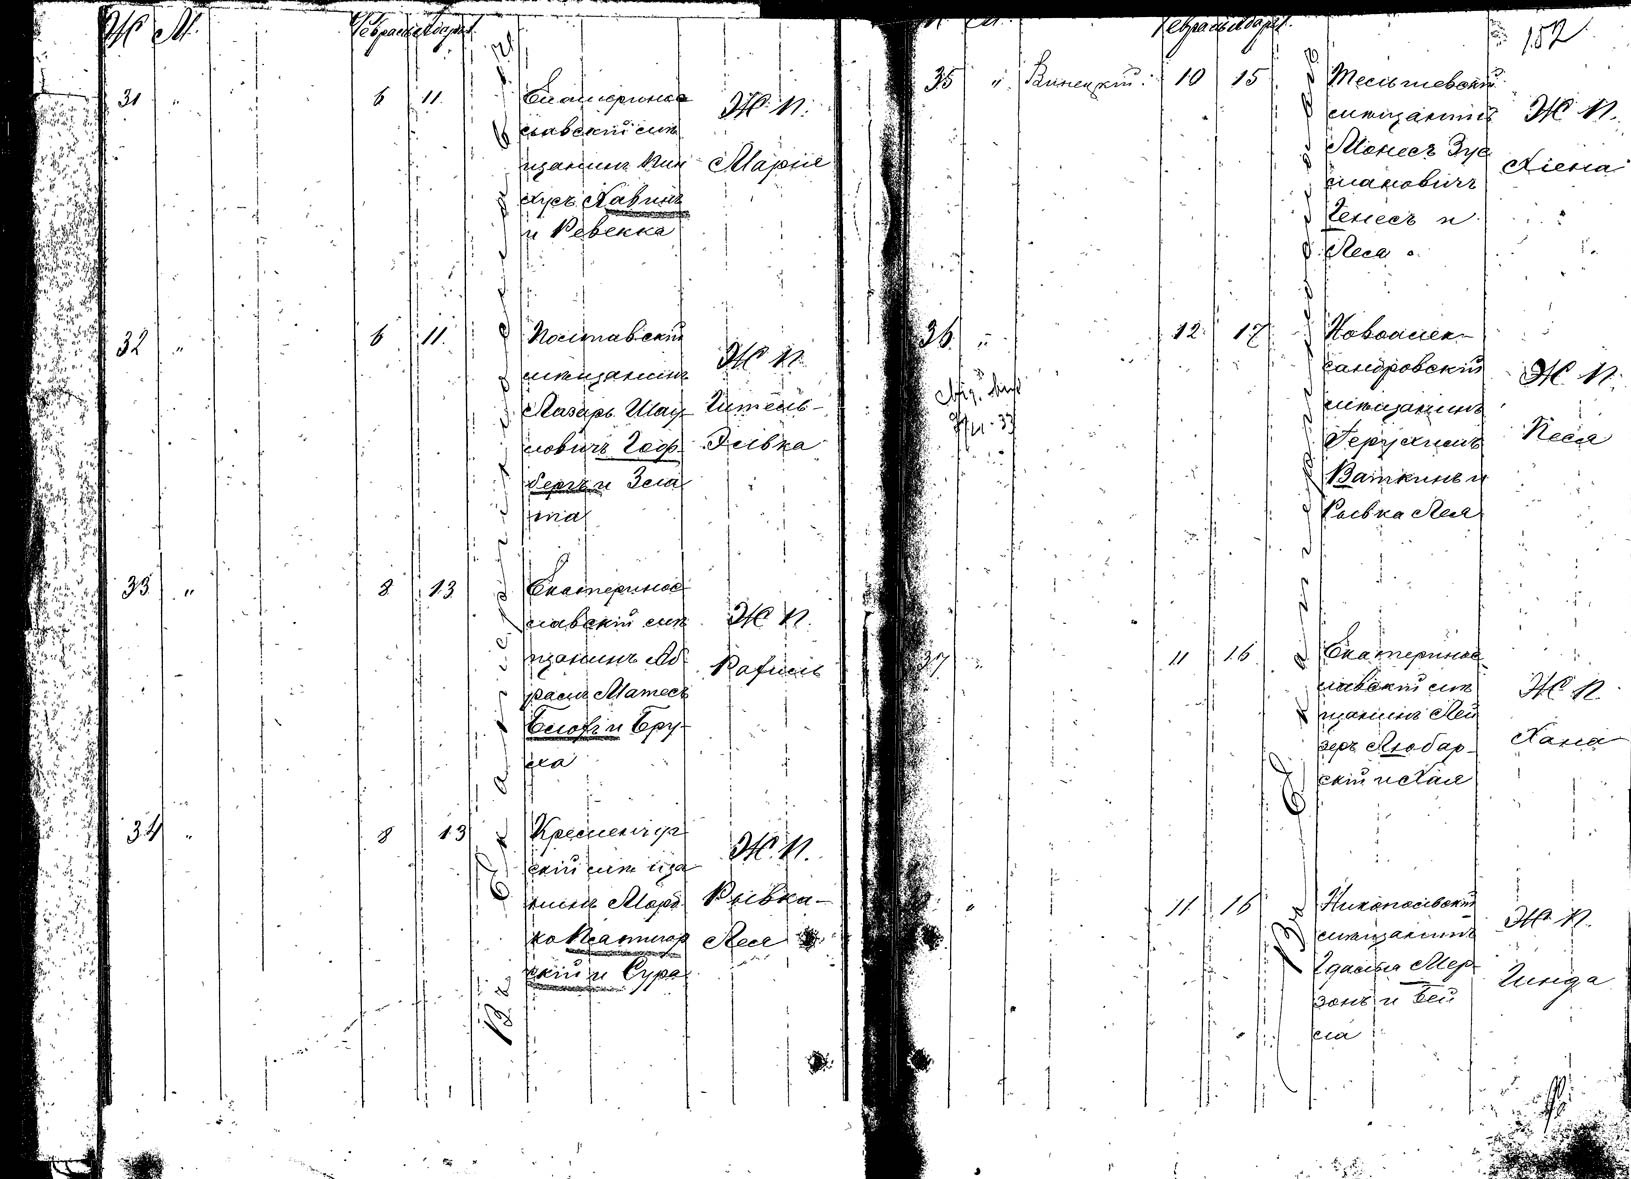 Ж М. Февраль Адаръ
31 " 6 11. Екатеринос
лавскій мѣ
щанинъ Пин
хусъ Хавинъ
и Ревекка
Ж П.
Марія
32 " 6 11. Полтавскій
мѣщанинъ
Лазарь Шау
ловичъ Гоф
бергъ и Зла
та
Ж П.
Гитель-
Эливка
33 " 8 13 Екатеринос
лавскій мѣ
щанинъ Аб
рамъ Матесъ
и Бру-
ха
Ж П.
Рахиль
34 " 8 13 Кременчуг
скій мѣща
нинъ Морд
ко Пятигор
скій и Сура
Ж. П.
Рывка-
Лея
Въ Екатеринославѣ
Февраль Адаръ
152
35 " Винецкій. 10 15 Тельшевскій
мѣщанинъ
Монесъ Зус
мановичъ
Генесъ и
Леся
Ж П.
Хіена
36 " 12 17 Новоалек-
сандровскій
мѣщанинъ
Герухимъ
Ваткинъ и
Рывка Лея
Ж П.
Песя
37 " 11 16 Екатеринос
лавскій мѣ
щанинъ Лей
зеръ Любар-
скій и Хая
Ж П.
Хана
" 11 16 Никопольскій
мѣщанинъ
Гдалья Мер-
зонъ и Бей
ла
Ж. П.
Гинда
Въ Екатеринославѣ